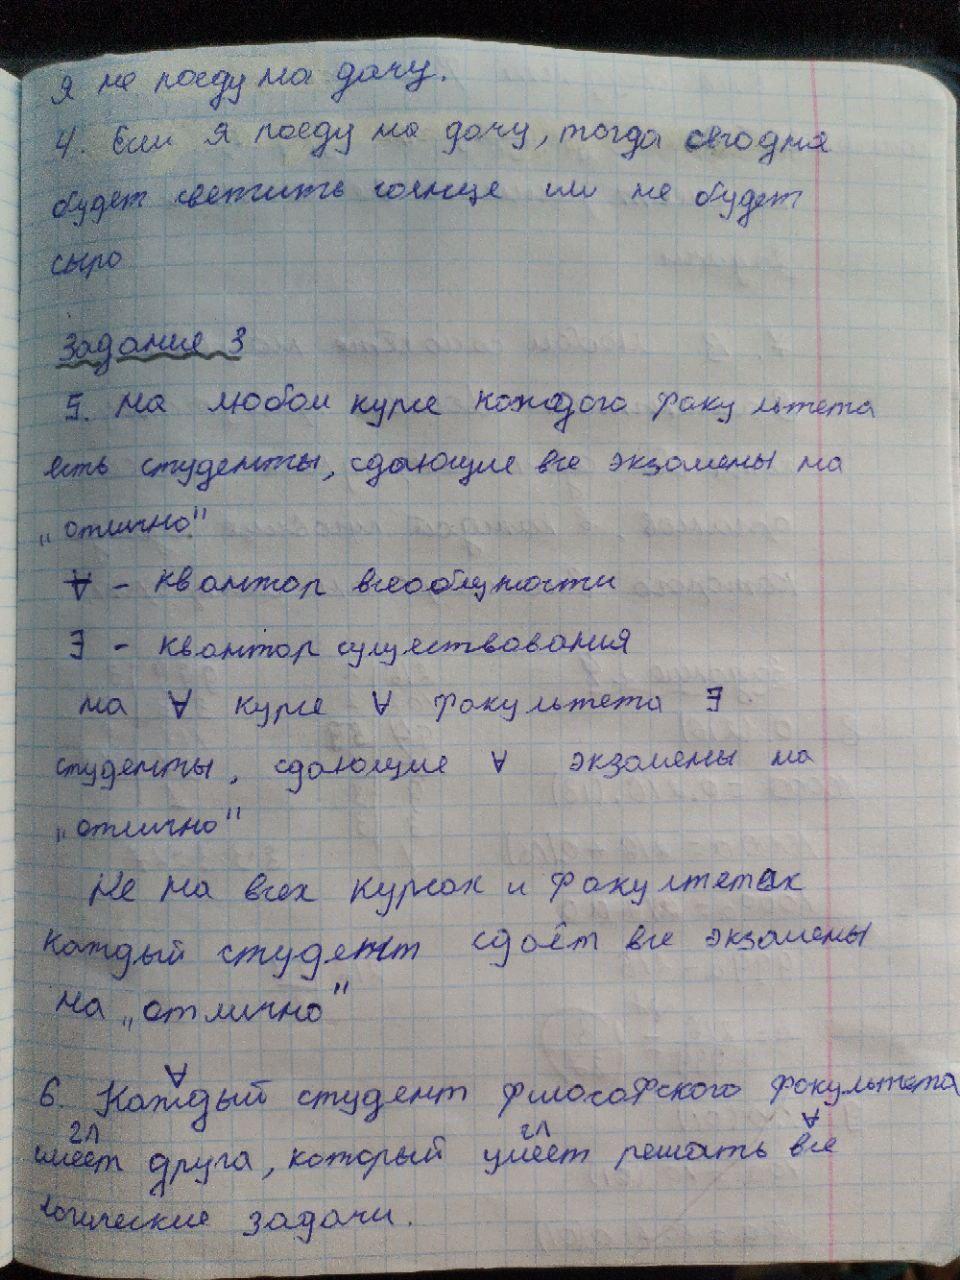 я не поеду на дачу.
4. Если я поеду на дачу, тогда сегодня
будет светить солнце или не будет
сыро
Задание 3
5. На любом курсе каждого факультета
есть студенты, сдающие все экзамены на
„отлично"
∀ - квантор всеобщности
∃ - квантор существования
на ∀ курсе ∀ факультета ∃
студенты, сдающие ∀ экзамены на
„отлично"
Не на всех курсах и факултетах
каждый студент сдаёт все экзамены
на „отлично"
∀
6. Каждый студент философского факультета
гл гл ∀
имеет друга, который умеет решать все
логические задачи.